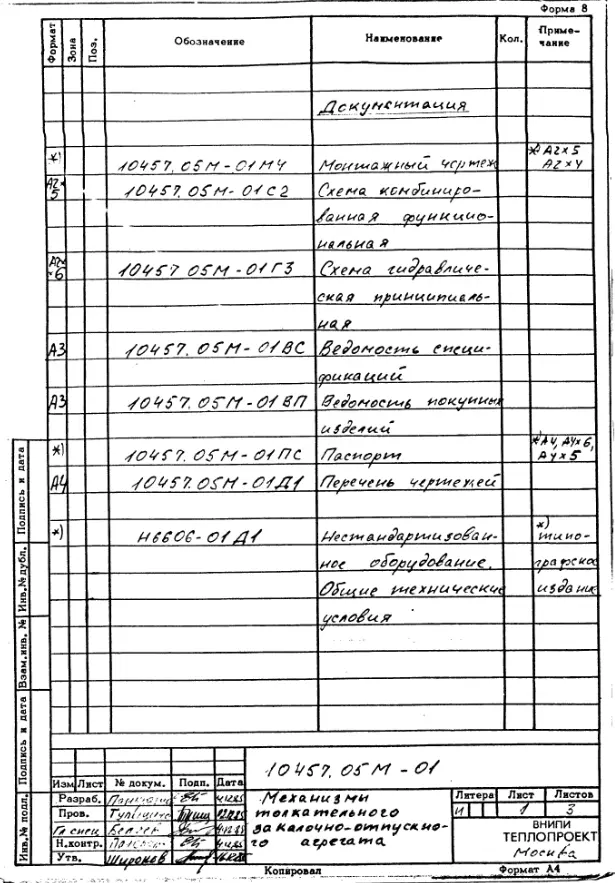 Форма 8
Формат Зона Поз. Обозначение Наименование Кол. Приме-
чание
Документация
*) 10457.05М-01МЧ Монтажный чертеж *) А2х5
А2х4
А2х
5 10457.05М-01С2 Схема комбиниро-
ванная функцио-
нальная
А2х
х6 10457.05М-01Г3 Схема гидравличе-
ская принципиаль-
ная
А3 10457.05М-01ВС Ведомость специ-
фикаций
А3 10457.05М-01ВП Ведомость покупных
изделий
*) 10457.05М-01ПС Паспорт *)А4, А4х6,
А4х5
А4 10457.05М-01Д1 Перечень чертежей
*) Н6606-01Д1 Нестандартизован- *)
типо-
ное оборудование. графское
Общие технические издание
условия
Подпись и дата
Инв.№ дубл.
Взам.инв. №
Подпись и дата
Инв.№ подл.
10457.05М-01
Изм Лист № докум. Подп. Дата
Разраб.
Пров.
Гл спец
Н.контр.
Утв. Широков
Механизмы
толкательного
закалочно-отпускно-
го агрегата
Литера Лист Листов
И 1 3
ВНИПИ
ТЕПЛОПРОЕКТ
Москва
Копировал Формат А4